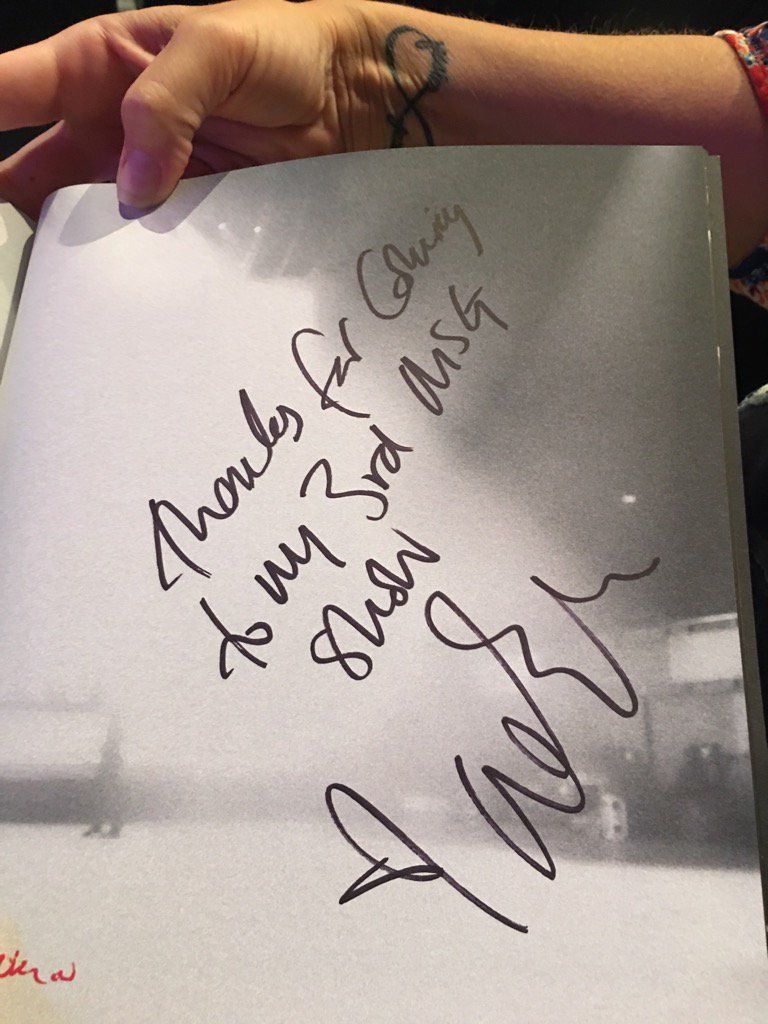 Thanks for Coming
to my 3rd MSG
show